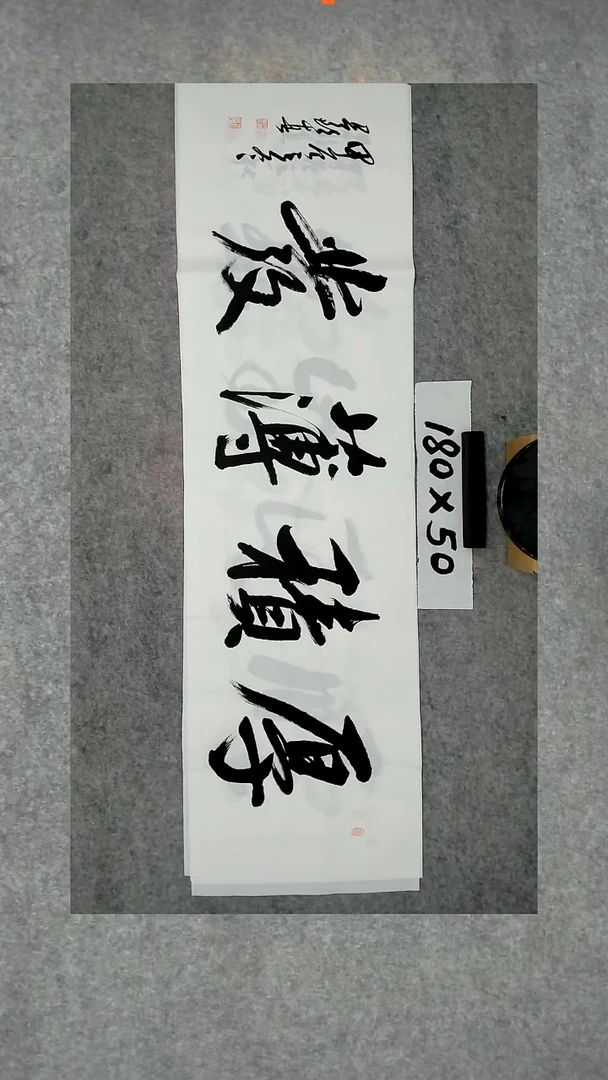 厚積薄發
甲辰
180×50